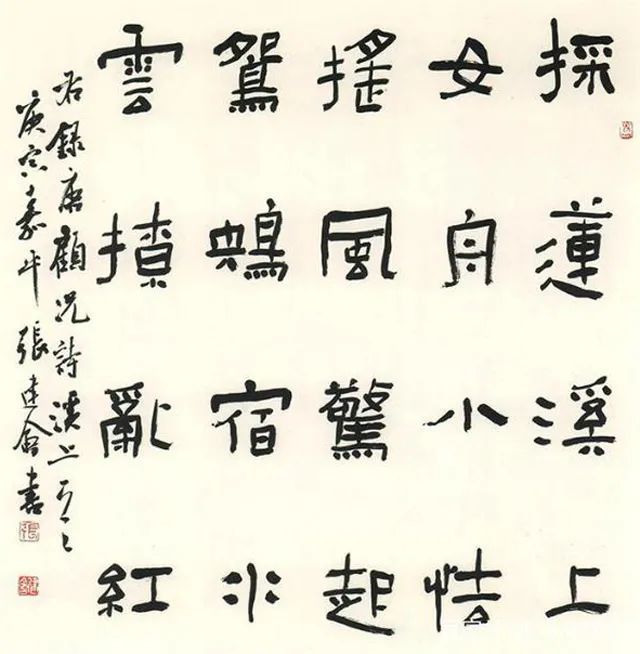 採蓮溪上
女舟小怯
搖風驚起
鴛鴦宿水
雲撩亂紅
右錄唐顧況詩溪上
庚寅嘉平張建會書